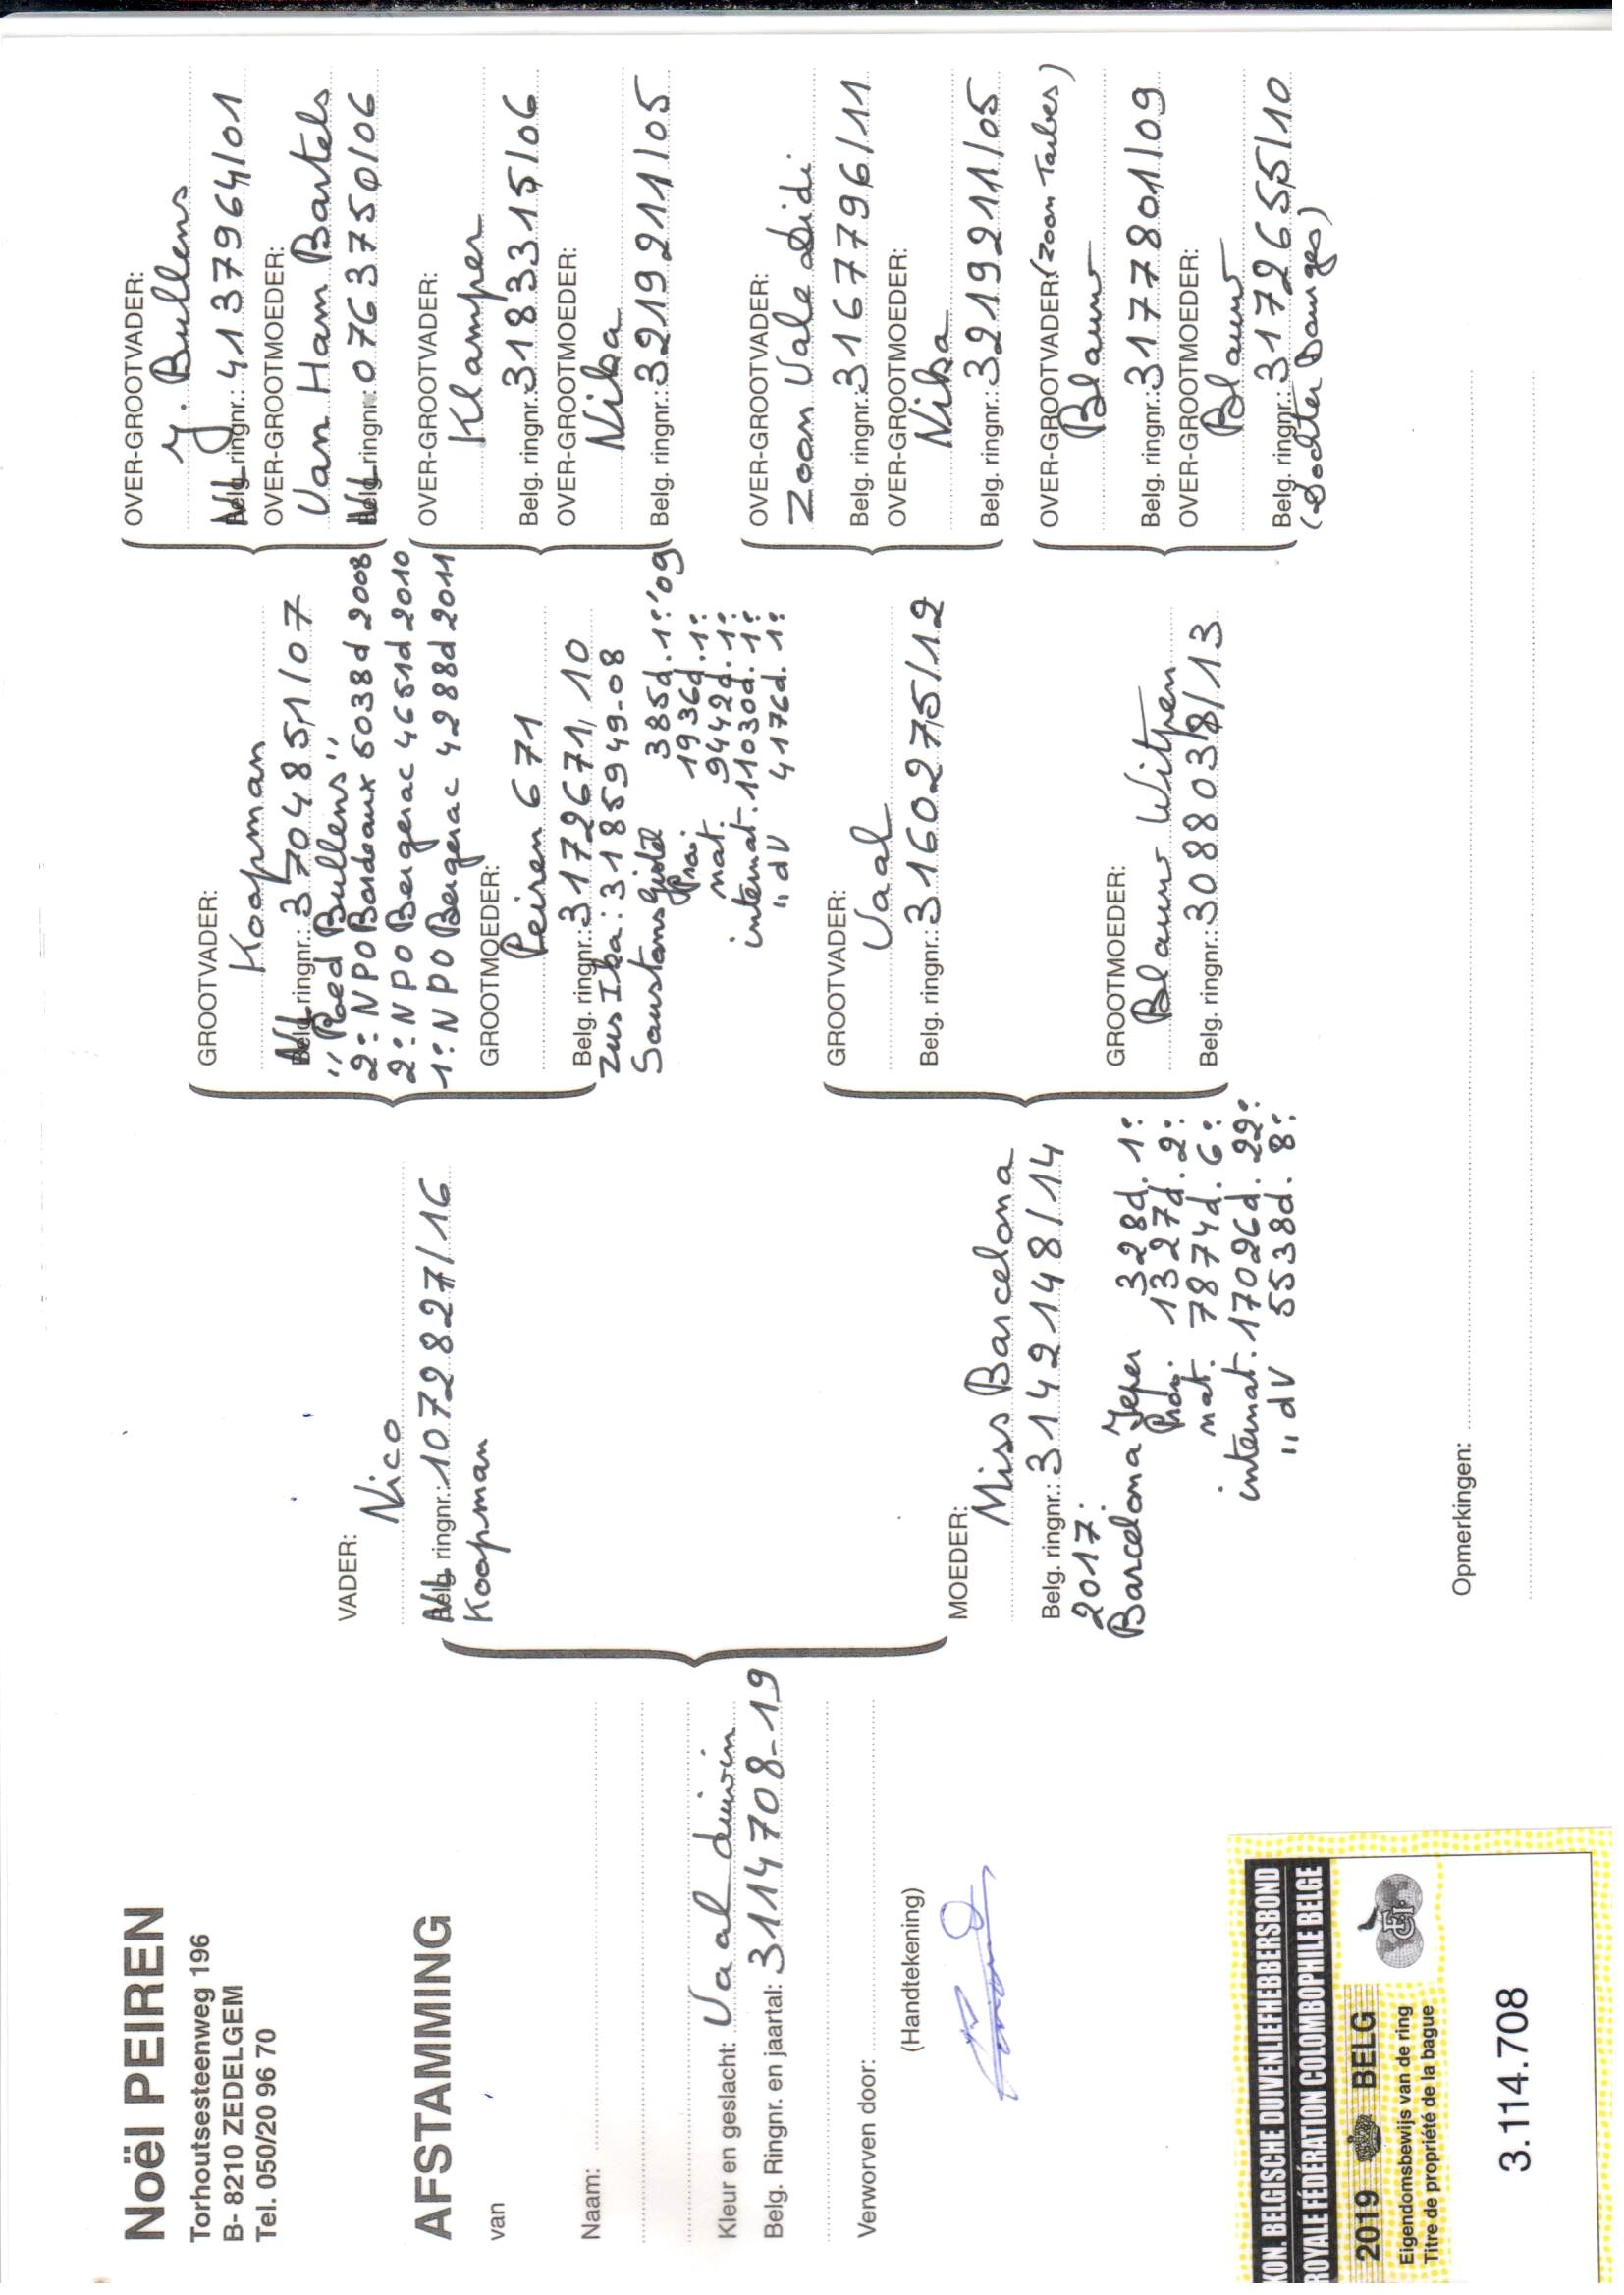 Noël PEIREN
Torhoutsesteenweg 196
B- 8210 ZEDELGEM
Tel. 050/20 96 70
AFSTAMMING
van
Naam:
Kleur en geslacht: Vaal duivin
Belg. Ringnr. en jaartal: 3114708-19
Verworven door:
(Handtekening)
KON. BELGISCHE DUIVENLIEFHEBBERSBOND
ROYALE FÉDÉRATION COLOMBOPHILE BELGE
2019 BELG
Eigendomsbewijs van de ring
Titre de propriété de la bague
3.114.708
VADER:
Nico
NL ringnr.: 1072827/16
Koopman
MOEDER:
Miss Barcelona
Belg. ringnr.: 3142148/14
2017:
Barcelona Ieper 328d. 1:
Prov. 1327d. 2:
nat. 7874d. 6:
internat. 17026d. 22:
" dV 5538d. 8:
GROOTVADER:
Koopman
NL ringnr.: 3704851/07
"Roed Bullens"
2: NPO Bordeaux 6038d 2008
2: NPO Bergerac 4651d 2010
1: NPO Bergerac 4288d 2011
GROOTMOEDER:
Peiren 671
Belg. ringnr.: 3172671/10
Zus Ika: 3185949-08
Soustons Gistel 385d. 1:'09
Prov. 1936d. 1:
nat. 9442d. 1:
internat. 11030d. 1:
" dV 4176d. 1:
GROOTVADER:
Vaal
Belg. ringnr.: 3160275/12
GROOTMOEDER:
Blauw Witpen
Belg. ringnr.: 3088038/13
OVER-GROOTVADER:
J. Bullens
NL ringnr.: 4137964/01
OVER-GROOTMOEDER:
Van Ham Bartels
NL ringnr.: 0763750/06
OVER-GROOTVADER:
Klamper
Belg. ringnr.: 3183315/06
OVER-GROOTMOEDER:
Nika
Belg. ringnr.: 3219211/05
OVER-GROOTVADER:
Zoon Vale Didi
Belg. ringnr.: 3167796/11
OVER-GROOTMOEDER:
Nika
Belg. ringnr.: 3219211/05
OVER-GROOTVADER: (Zoon Tarbes)
Blauw
Belg. ringnr.: 3177801/09
OVER-GROOTMOEDER:
Blauw
Belg. ringnr.: 3172655/10
(Dochter Dauges)
Opmerkingen: